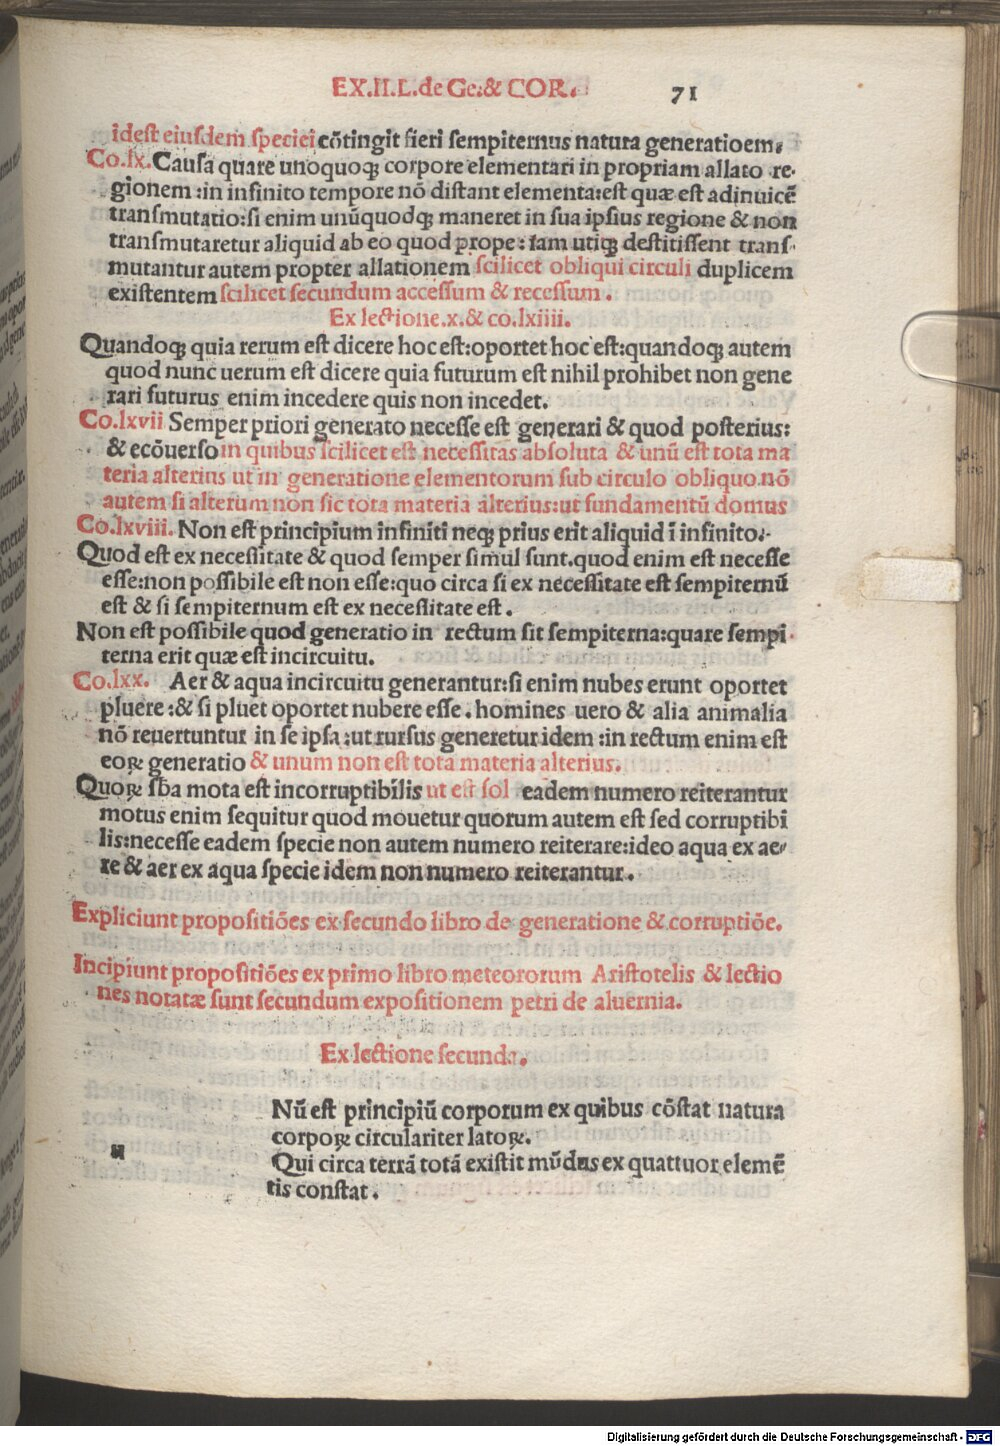 EX.II.L.de Ge:& COR. 71
idest eiusdem speciei cōtingit fieri sempiternus natura generatioem.
Co.lx. Causa quare unoquoqȝ corpore elementari in propriam allato re-
gionem :in infinito tempore nō distant elementa:est quæ est adinuicē
transmutatio:si enim unūquodqȝ maneret in sua ipsius regione & non
transmutaretur aliquid ab eo quod prope: iam utiqȝ destitissent trans-
mutantur autem propter allationem scilicet obliqui circuli duplicem
existentem scilicet secundum accessum & recessum .
Ex lectione.x.& co.lxiiii.
Quandoqȝ quia rerum est dicere hoc est:oportet hoc est:quandoqȝ autem
quod nunc uerum est dicere quia futurum est nihil prohibet non gene
rari futurus enim incedere quis non incedet.
Co.lxvii Semper priori generato necesse est generari & quod posterius:
& ecōuerso in quibus scilicet est necessitas absoluta & unū est tota ma
teria alterius ut in generatione elementorum sub circulo obliquo.nō
autem si alterum non sic tota materia alterius:ut fundamentū domus
Co.lxviii. Non est principium infiniti neqȝ prius erit aliquid ī infinito:
Quod est ex necessitate & quod semper simul sunt.quod enim est necesse
esse:non possibile est non esse:quo circa si ex necessitate est sempiternū
est & si sempiternum est ex necessitate est .
Non est possibile quod generatio in rectum sit sempiterna:quare sempi
terna erit quæ est incircuitu.
Co.lxx. Aer & aqua incircuitu generantur:si enim nubes erunt oportet
pluere :& si pluet oportet nubere esse . homines uero & alia animalia
nō reuertuntur in se ipsa :ut rursus generetur idem :in rectum enim est
eoꝝ generatio & unum non est tota materia alterius.
Quoꝝ sba mota est incorruptibilis ut est sol eadem numero reiterantur
motus enim sequitur quod mouetur quorum autem est sed corruptibi
lis:necesse eadem specie non autem numero reiterare:ideo aqua ex ae-
re & aer ex aqua specie idem non numero reiterantur.
Expliciunt propositiōes ex secundo libro de generatione & corruptiōe.
Incipiunt propositiōes ex primo libro meteororum Aristotelis & lectio
nes notatæ sunt secundum expositionem petri de aluernia.
Ex lectione secunda.
Nū est principiū corporum ex quibus cōstat natura
corpoꝝ circulariter latoꝝ.
Qui circa terrā totā existit mūdus ex quattuor elemē
tis constat .
Digitalisierung gefördert durch die Deutsche Forschungsgemeinschaft - DFG